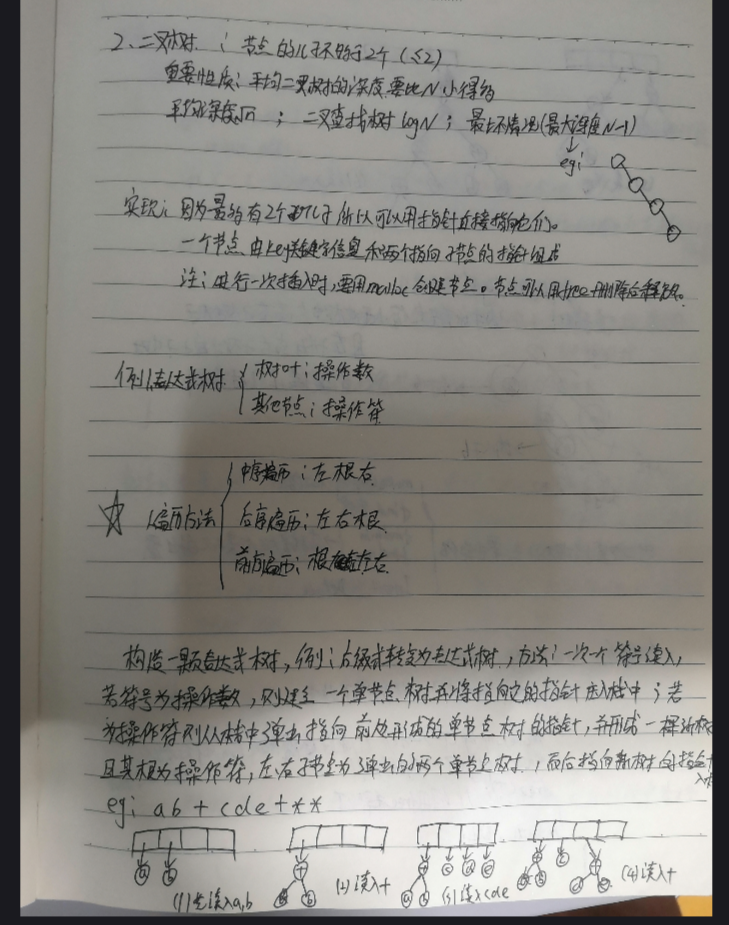 2、二叉树：节点的儿子不多于2个(≤2)
重要性质：平均二叉树的深度要比N小得多
平均深度√n；二叉查找树logN；最坏情况(最大深度N-1)
eg:
实现：因为最多有2个儿子所以可以用指针直接指向他们。
一个节点由key关键字信息和两个指向子节点的指针组成
注：进行一次插入时，要用malloc创建节点。节点可以用free删除后释放。
例1、表达式树 { 树叶：操作数
其他节点：操作符
☆ 遍历方法 { 中序遍历：左根右
后序遍历：左右根
前序遍历：根左右
构造一颗表达式树，例：后缀式转变为表达式树，方法：一次一个符号读入，
若符号为操作数，则建立一个单节点树并将指向它的指针压入栈中；若
为操作符则从栈中弹出指向前处形成的单节点树的指针，并形成一棵新树
且其根为操作符，左、右子节点为弹出的两个单节点树，而后指向新树的指针
入
eg: ab+cde+**
+ + c d e + c +
a b a b a b a b d e
(1)先读入a,b (2)读入+ (3)读入cde (4)读入+